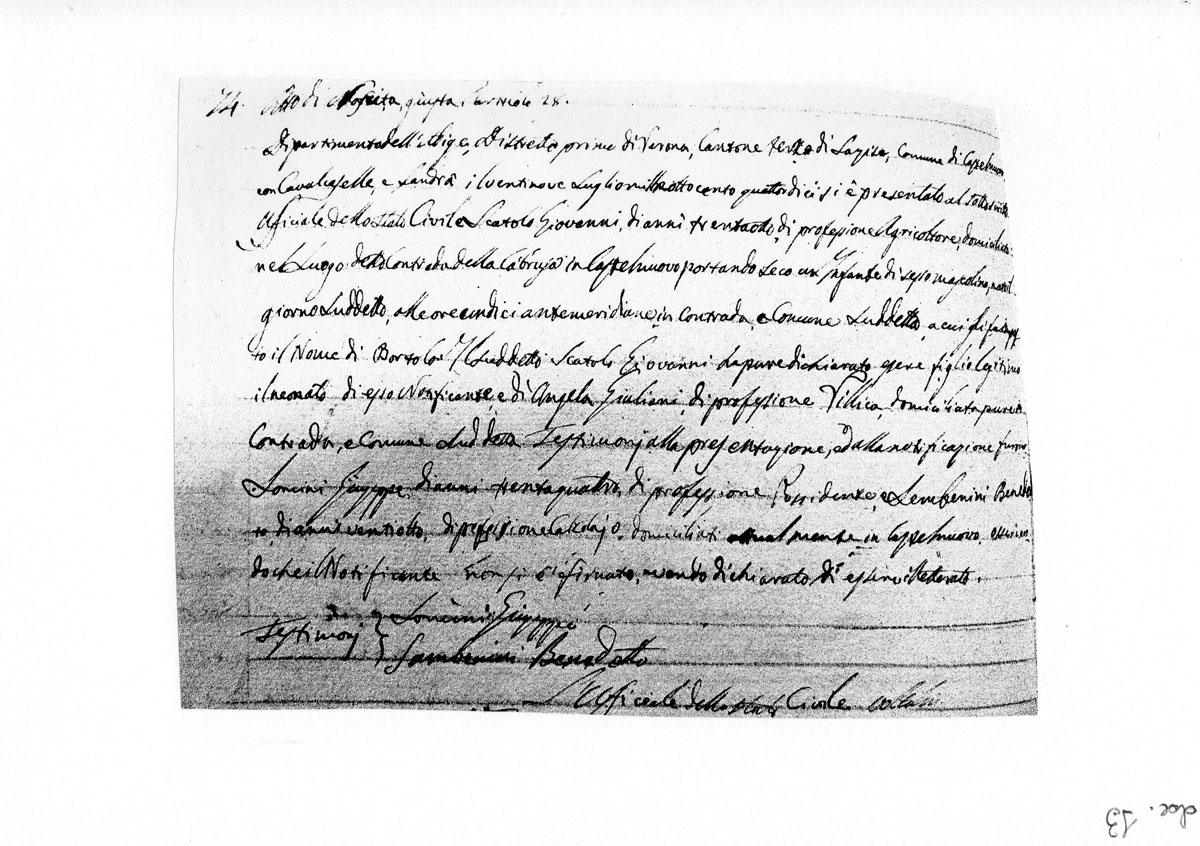 74. Atto di Nascita, giusta l'articolo 28.
Dipartimento dell'Adige, Distretto primo di Verona, Cantone terzo di Lazise, Comune di Castelnuovo
con Cavalcaselle, e Sandrà il ventinove Luglio mille ottocento quattordici si è presentato al sottoscritto
Officiale dello Stato Civile Scatolo Giovanni, di anni trentaotto, di professione Agricoltore, domiciliato
nel Luogo detto Contrada della Cà brusà in Castelnuovo portando seco un Infante di sesso mascolino, nato il
giorno suddetto, alle ore undici antemeridiane in Contrada, e Comune suddetto, a cui gli fu
to il Nome di Bortolo. Il suddetto Scatolo Giovanni ha pure dichiarato essere figlio legitimo
il neonato di esso Notificante, e di Angela Giuliani, di professione Villica, domiciliata pure in
Contrada, e Comune suddetta Testimonj alla presentazione, ed alla notificazione furono
Loncini Giuseppe di anni trentaquattro, di professione Possidente, e Lembenini Benedet
to di anni ventiotto, di professione Calzolajo, domiciliati attualmente in Castelnuovo, essen
do che il Notificante non si è firmato, avendo dichiarato di essere illetterato.
Testimonj } Loncini Giuseppe
Sambenini Benedetto
L'Officiale dello Stato Civile
doc. 13